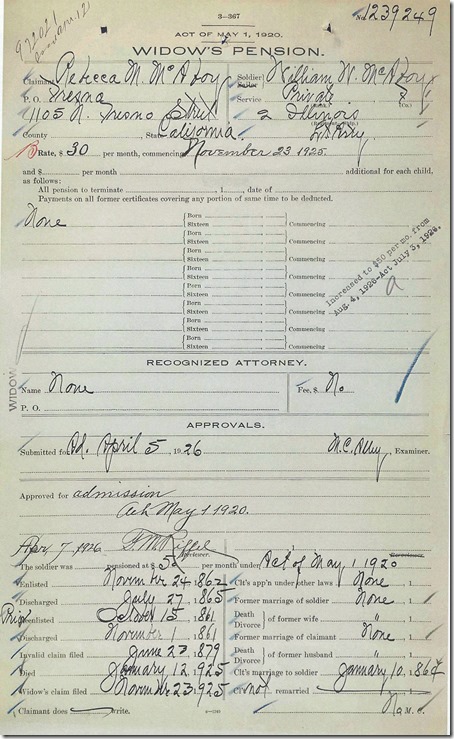 3-367
No. 1239249
ACT OF MAY 1, 1920.
WIDOW'S PENSION.
Claimant Rebecca M. McAvoy
Soldier William W. McAvoy
P. O. Fresno
Service Private
1105 N. Fresno Street
2 Illinois
Lt Arty
County State California
Rate, $ 30 per month, commencing November 23 1925.
and $ per month additional for each child,
as follows:
All pension to terminate , 1 , date of
Payments on all former certificates covering any portion of same time to be deducted.
None
Born
Sixteen Commencing
Born
Sixteen Commencing
Born
Sixteen Commencing
Born
Sixteen Commencing
Born
Sixteen Commencing
Born
Sixteen Commencing
Born
Sixteen Commencing
Born
Sixteen Commencing
Increased to $50 per mo. from
Aug. 4, 1926-Act July 3, 1926.
WIDOW
RECOGNIZED ATTORNEY.
Name None
Fee, $ No
P. O.
APPROVALS.
Submitted for Ad. April 5, 1926
Examiner.
Approved for admission
Act May 1 1920.
Apr 7 1926
Reviewer.
The soldier was pensioned at $ per month under Act of May 1 1920
Enlisted November 24 1862
Cl't's app'n under other laws None 1
Discharged July 27 1865
Former marriage of soldier None 1
Prior
enlisted October 15 1861
Death
Divorce } of former wife " 1
Discharged November 1 1861
Former marriage of claimant None 1
Invalid claim filed June 23 1879
Death
Divorce } of former husband " 1
Died January 12 1925
Cl't's marriage to soldier January 10, 1867
Widow's claim filed November 23 1925
not remarried 1
Claimant does write.
Name.